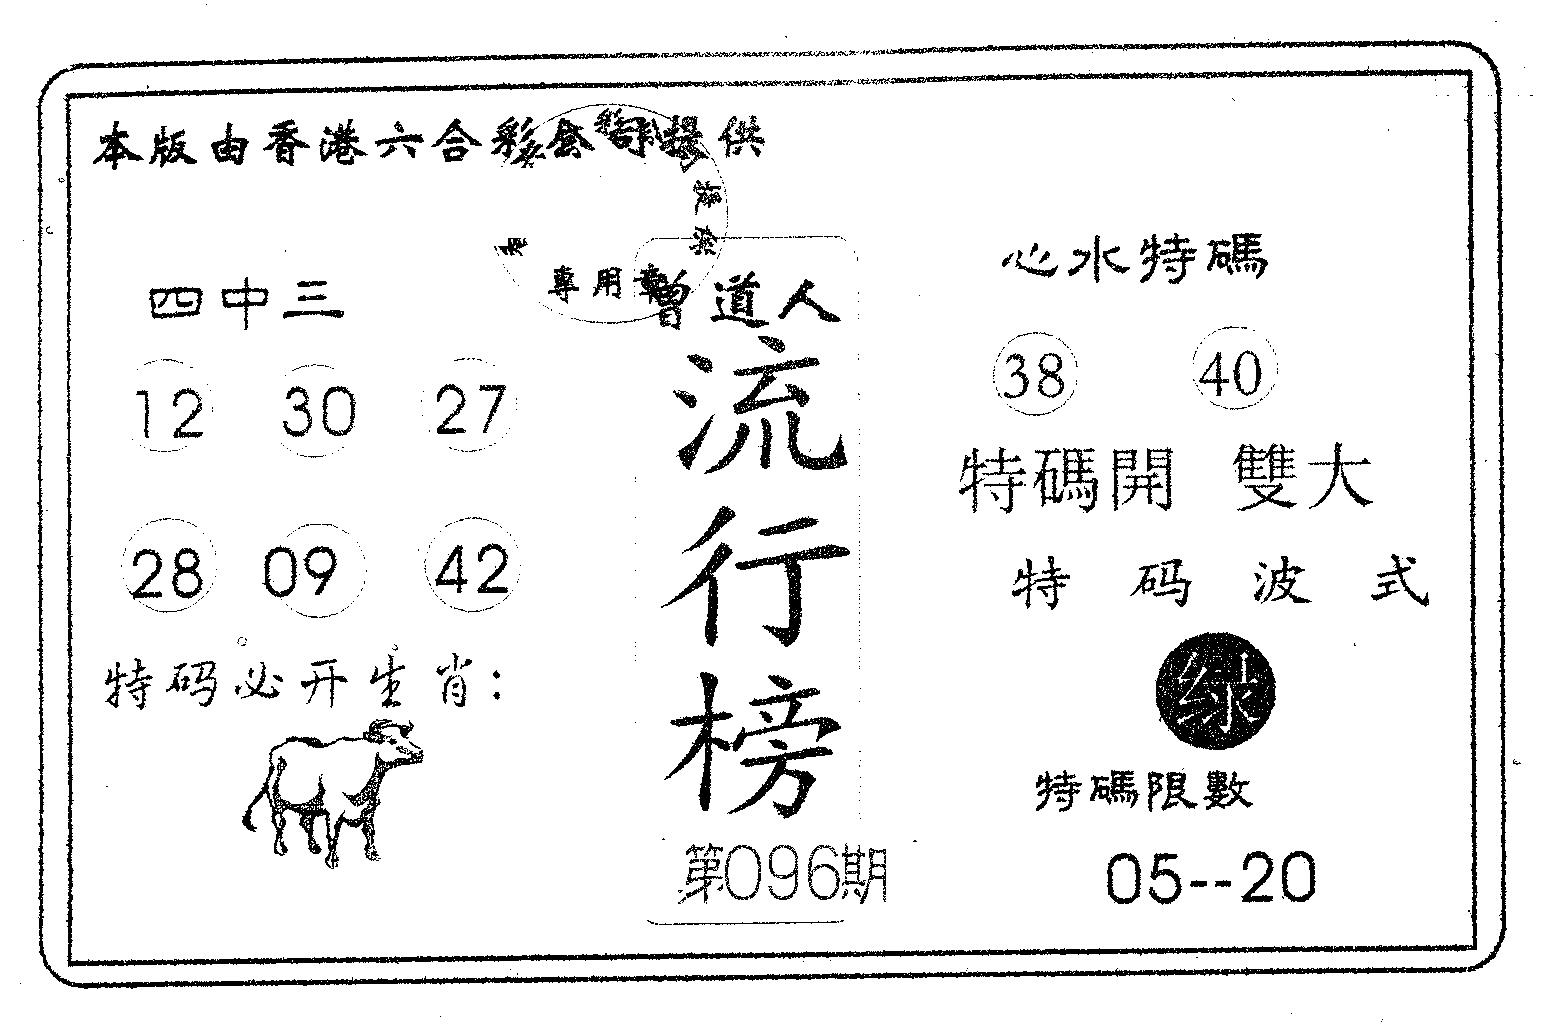 本版由香港六合彩公司提供
專用章
四中三
12 30 27
28 09 42
特码必开生肖:
曾道人
流行榜
第096期
心水特碼
38 40
特碼開 雙大
特码波式
绿
特碼限數
05--20